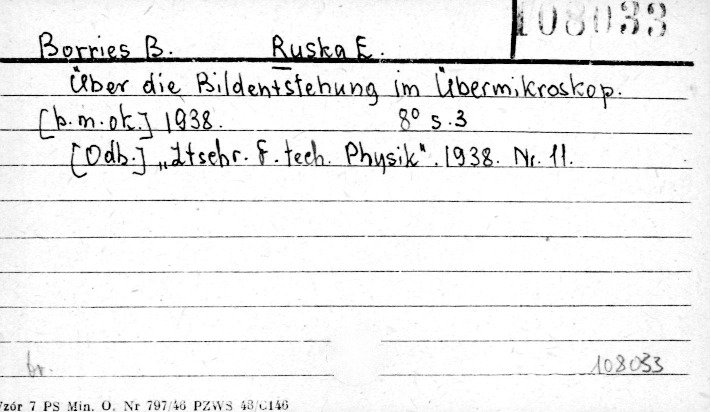 108033
Borries B. Ruska E.
Über die Bildentstehung im Übermikroskop.
[b.m.ok.] 1938. 8° s.3
[Odb.] „Ztschr. f. tech. Physik". 1938. Nr. 11.
br. 108033
Wzór 7 PS Min. O. Nr 797/46 PZWS 48/C146